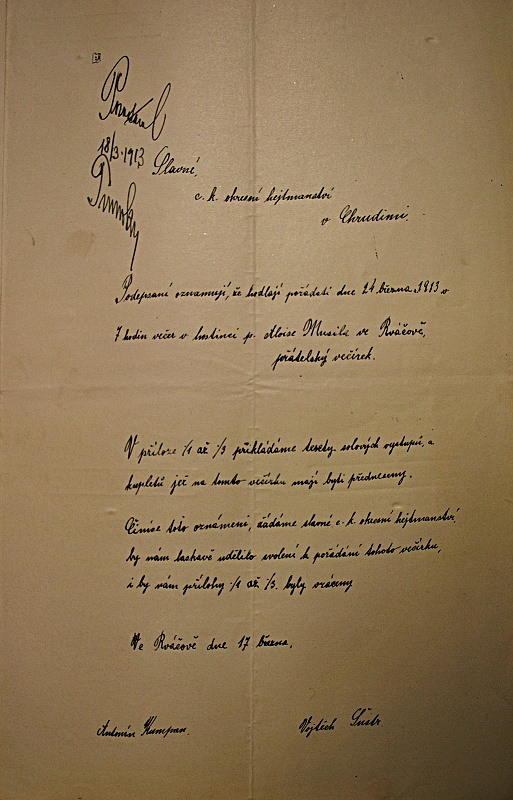 18/3. 1913
Slavné,
c. k. okresní hejtmanství
v Chrudimi.
Podepsaní oznamují, že hodlají pořádati dne 24 března 1913 v
7 hodin večer v hostinci p. Aloise Musila ve Rváčově,
přátelský večírek.
V příloze ·/1 až ·/3 přikládáme texty solových výstupů, a
kupletů jež na tomto večírku mají býti předneseny.
Činíce toto oznámení, žádáme slavné c. k. okresní hejtmanství,
by nám laskavě udělilo svolení k pořádání tohoto večírku,
i by nám přílohy ·/1 až ·/3. byly vráceny
Ve Rváčově dne 17 března.
Antonín Kumpan.
Vojtěch Šustr